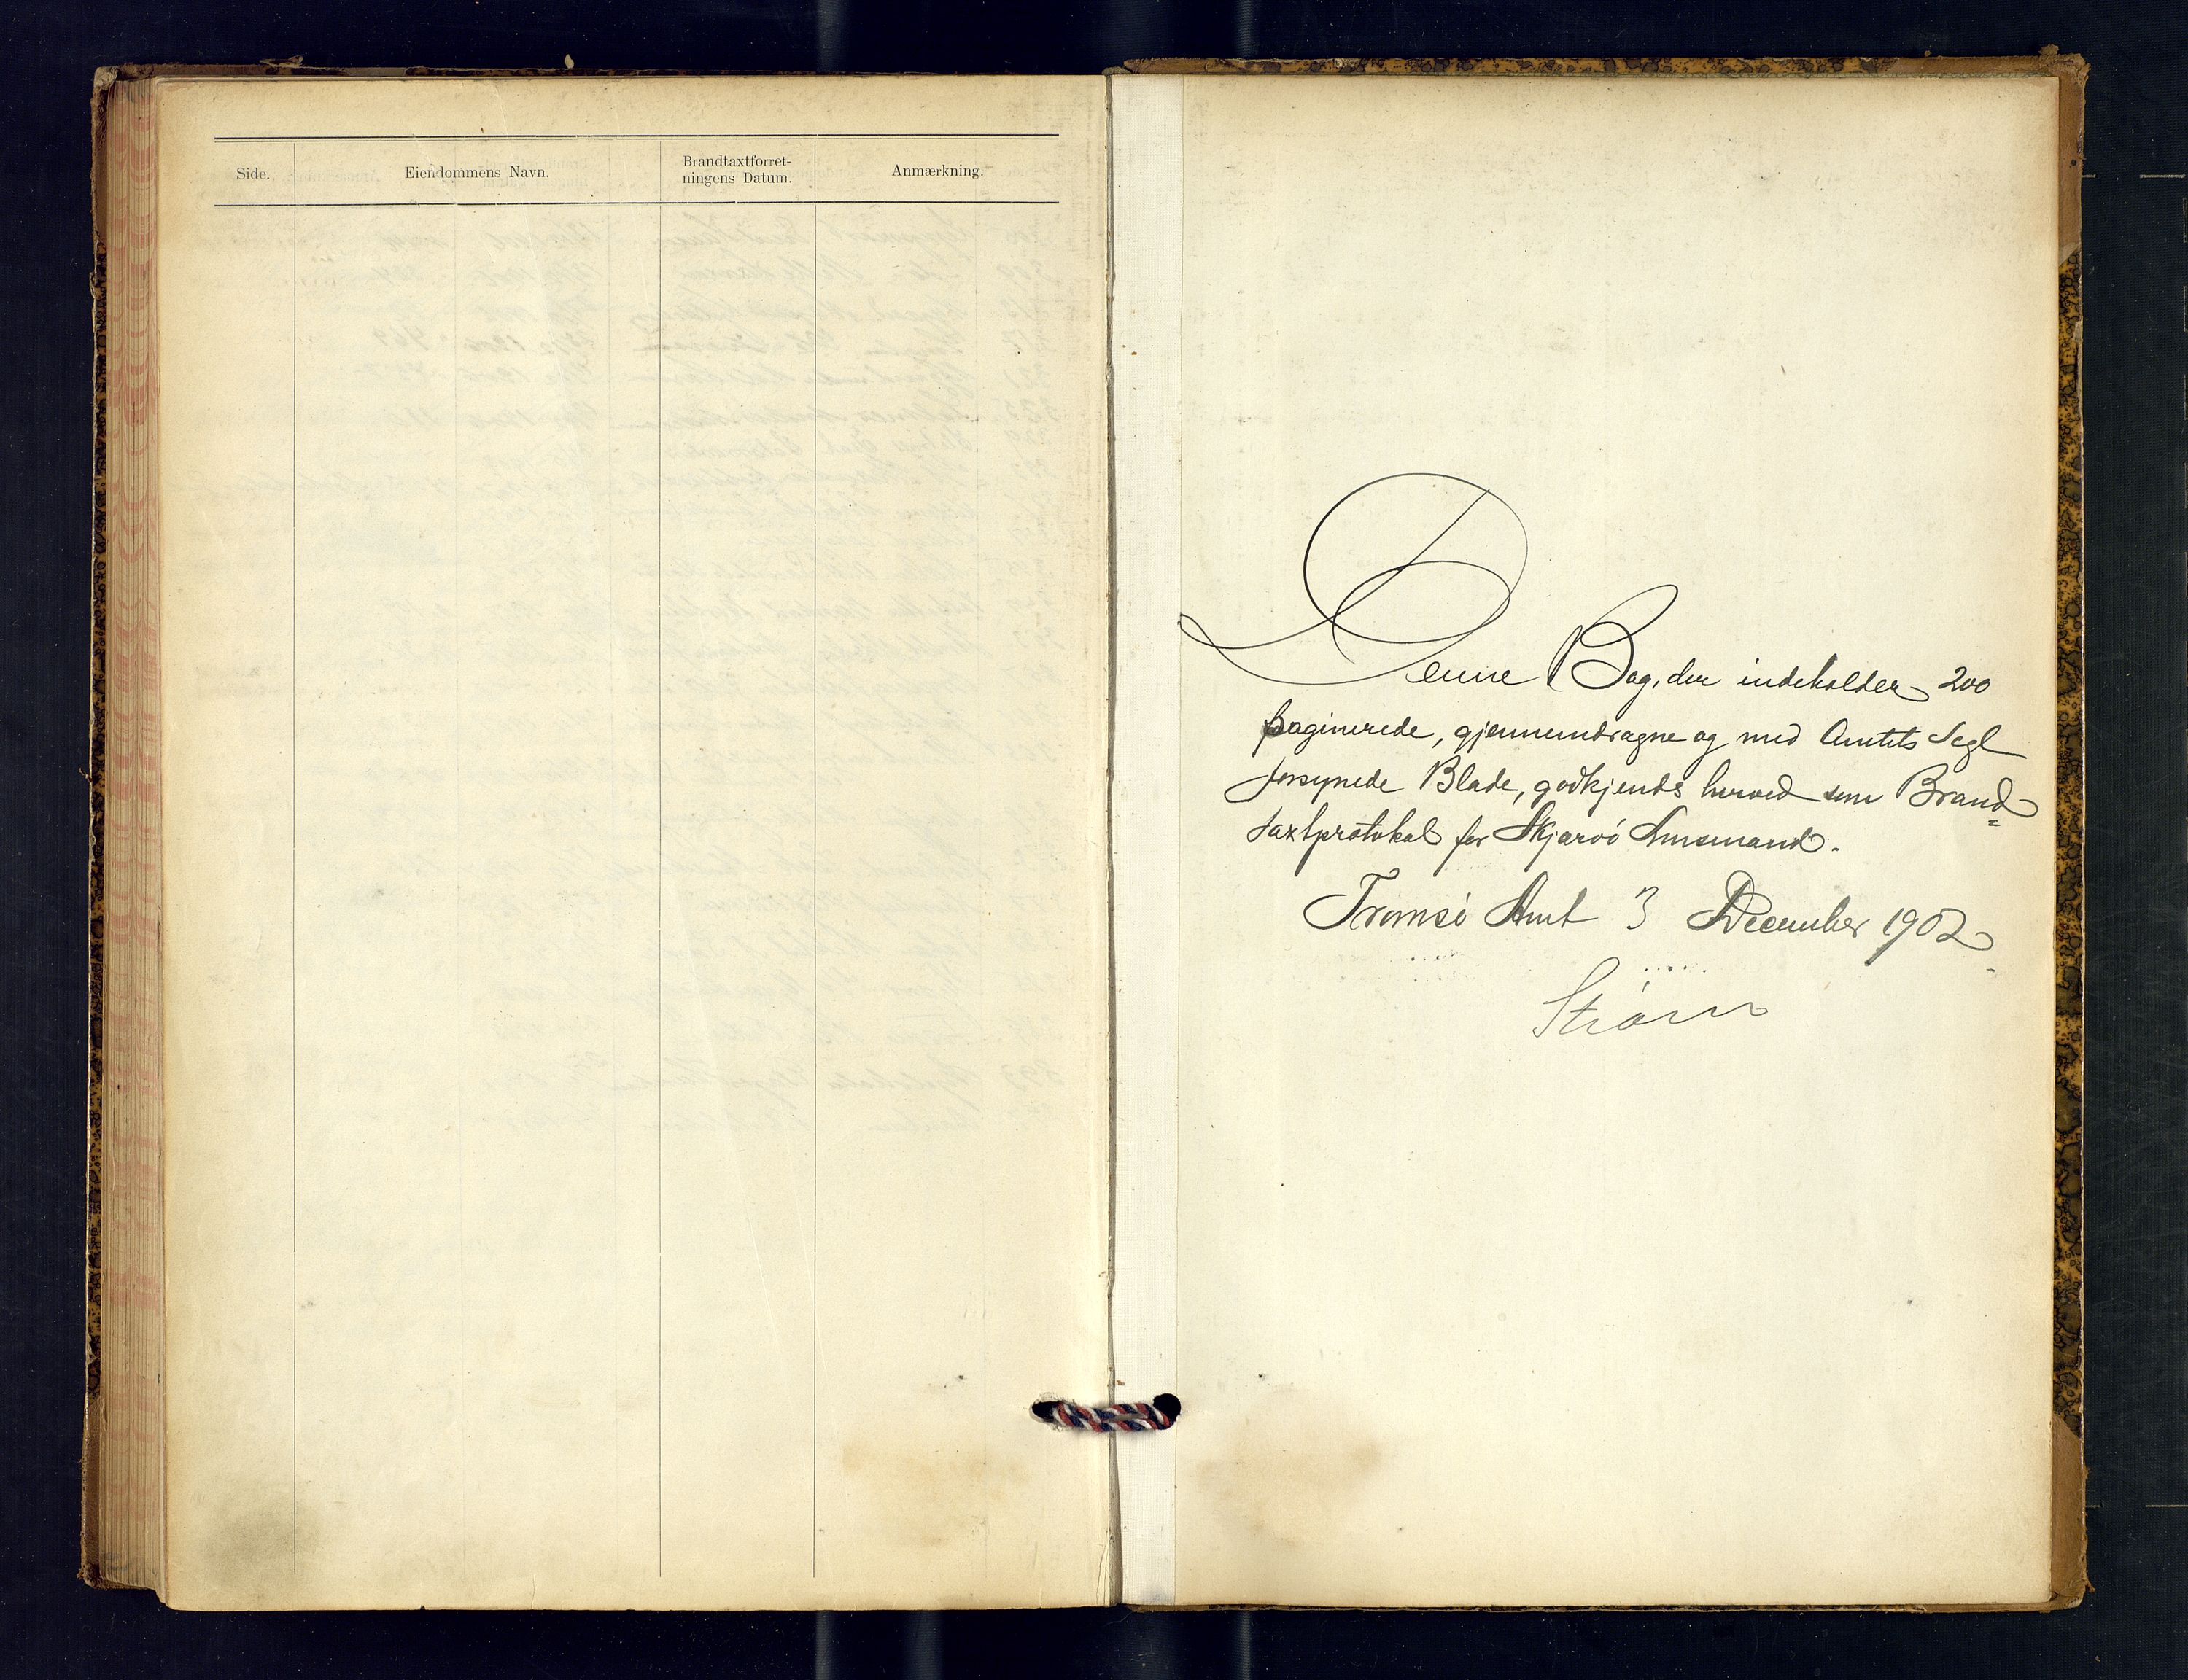 Side.
Eiendommens Navn.
Brandtaxtforret-
ningens Datum.
Anmærkning.
Denne Bog, der indeholder 200
paginerede, gjennemdragne og med Amtets Segl
forsynede Blade, godkjendes herved som Brand=
taxtprotokol for Skjervö Lensmand.
Tromsö Amt 3 December 1902.
Ström